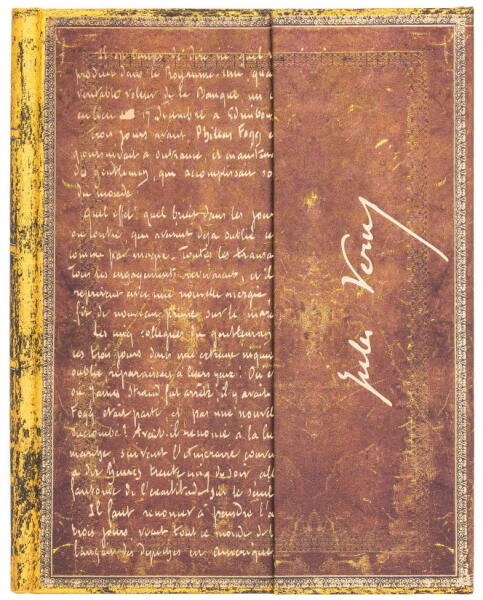 produit dans le Royaume-Uni qua
véritable voleur de la Banque un
eu lieu 17 Décembre à Edimbou
Trois jours avant, Phileas Fogg é
poursuivait à outrance et mainten
de gentleman, qui accomplissait so
du monde.
Quel effet, quel bruit dans les jour
ou contre qui avaient déjà oublié ce
comme par magie. Toutes les transa
tous les engagements revivaient, et il
reprirent avec une nouvelle
fit de nouveau prime sur le mar
Les cinq collègues du gentleman
ces trois jours dans une certaine inqui
oublié reparaissait à leurs yeux! Où é
où James Strand fut arrêté, il y avait
Fogg était parti et pas une nouvel
succombé? Avait-il renoncé à la lu
marche, suivant l'itinéraire conve
à dix heures trente cinq du soir
fantôme de l'exactitude sur le seuil
Il faut renoncer à peindre l'a
trois jours tout ce monde de
Lançait des dépêches en Amérique
Jules Verne